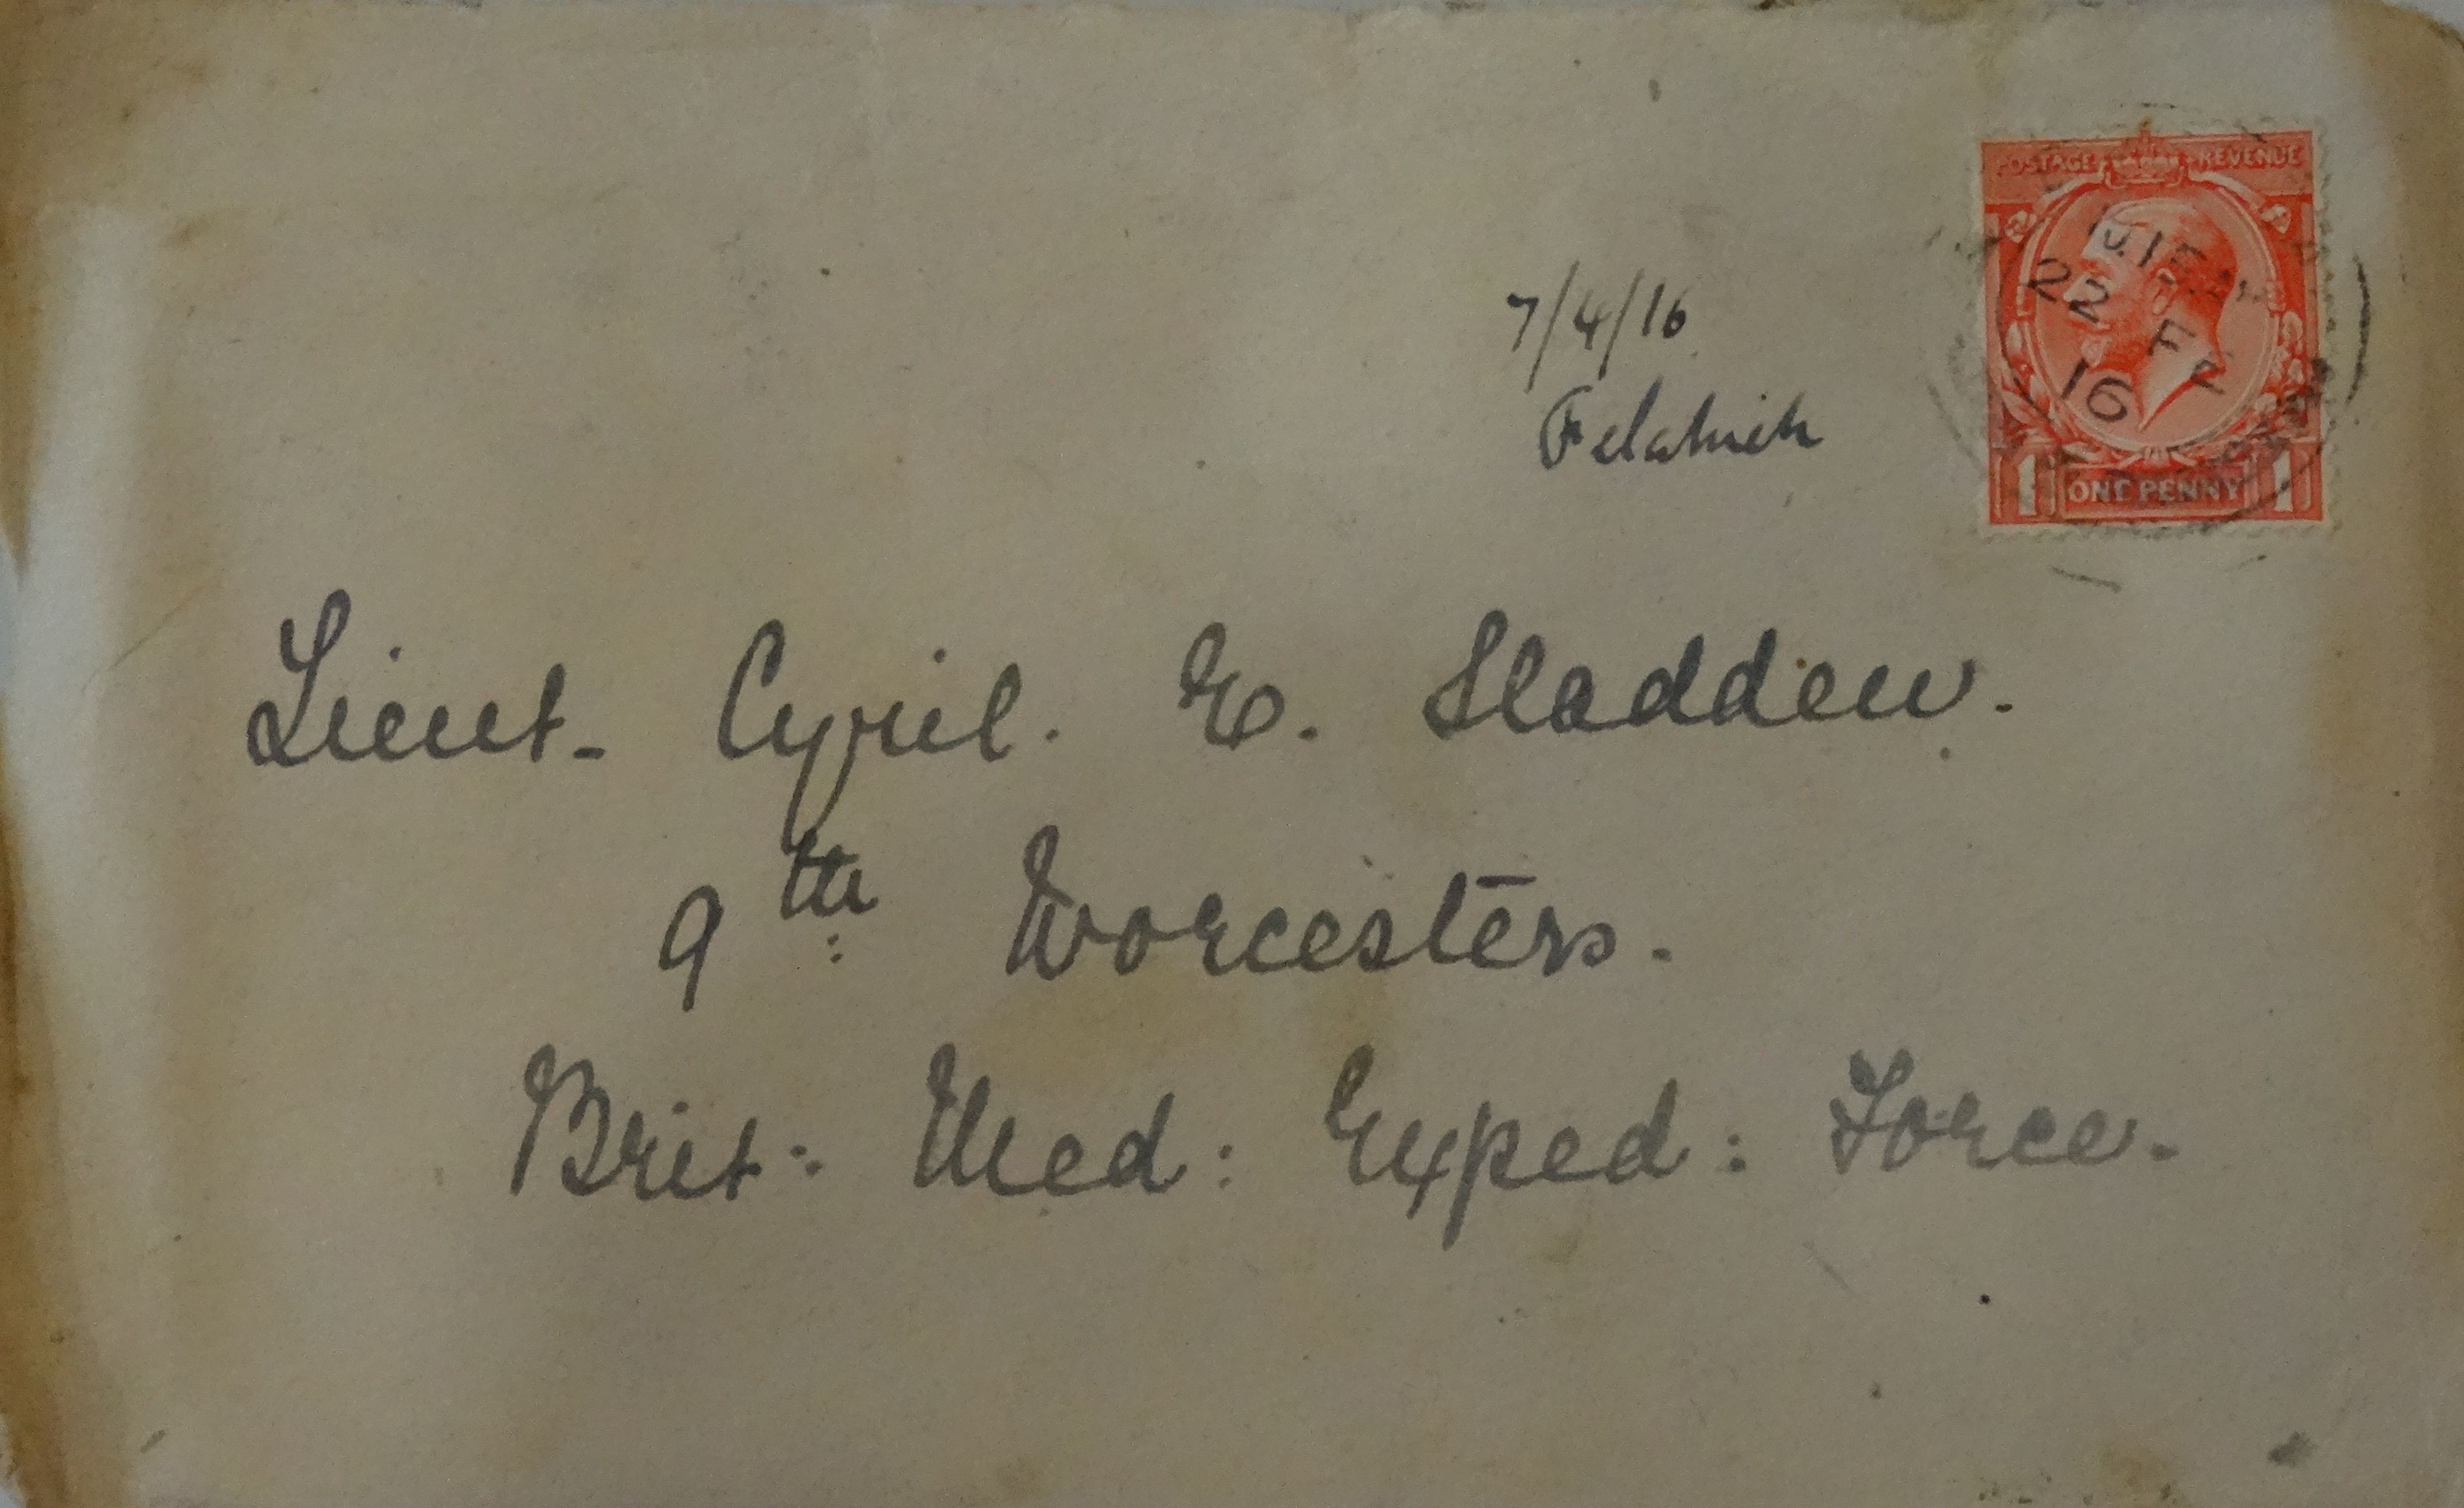 POSTAGE REVENUE
22 FE
16
1 ONE PENNY 1
7/4/16
Felahieh
Lieut. Cyril. E. Sladden.
9th: Worcesters.
Brit: Med: Exped: Force.